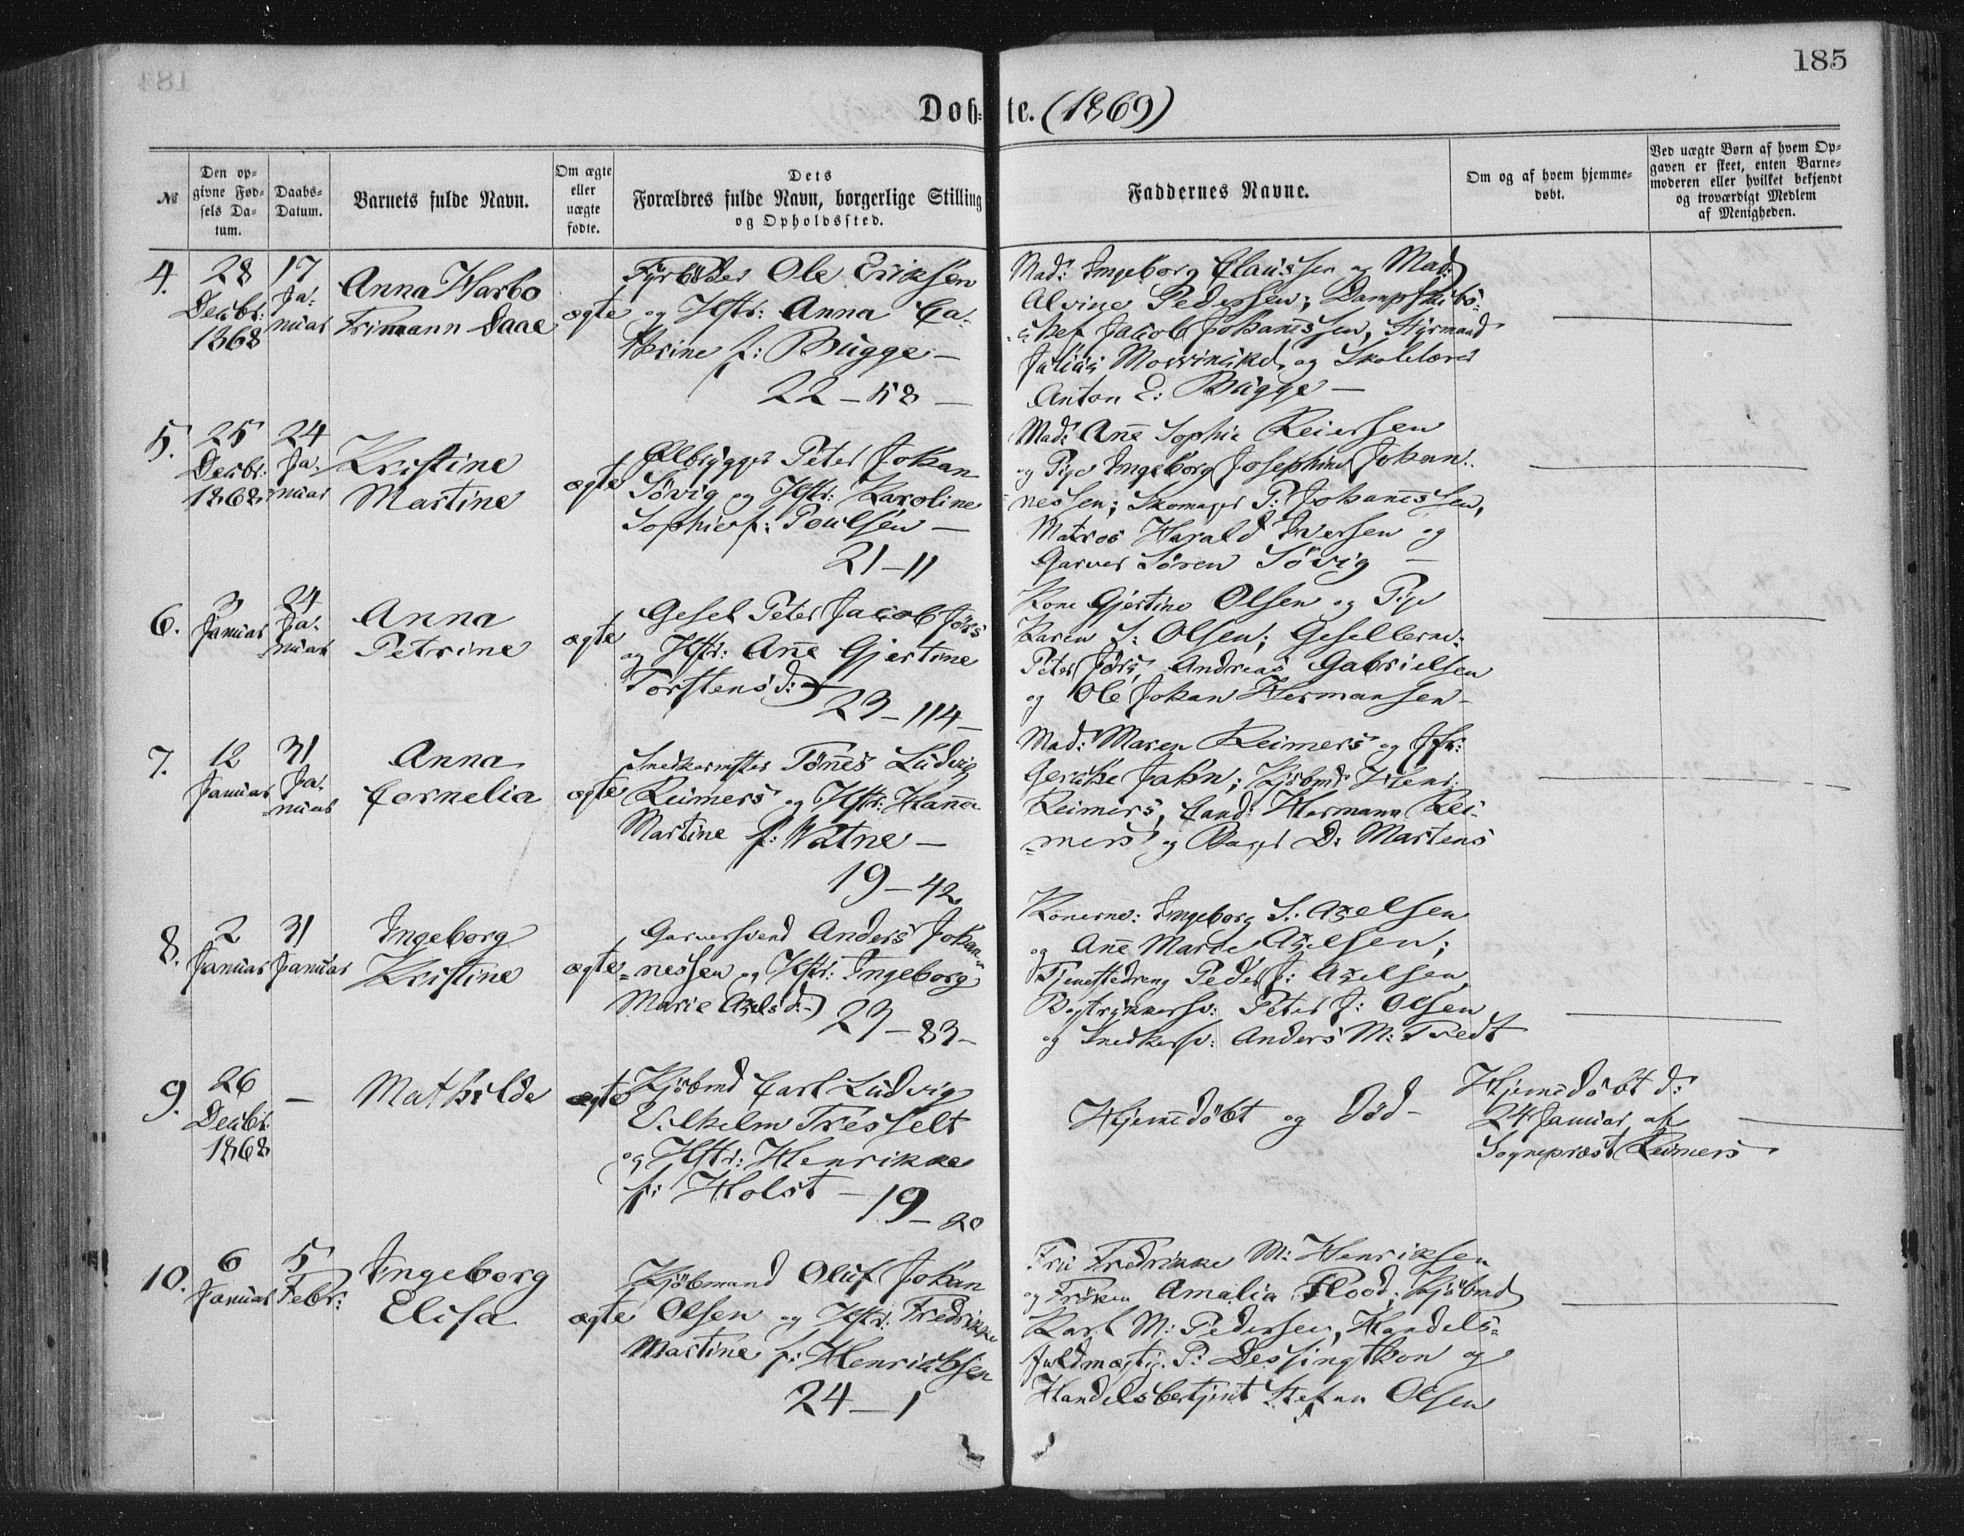 185
Døb-te. (1869)
№
Den op-
givne Fød-
sels Da-
tum.
Daabs-
Datum.
Barnets fulde Navn.
Om ægte
eller
uægte
fødte.
Dets
Forældres fulde Navn, borgerlige Stilling
og Opholdssted.
Faddernes Navne.
Om og af hvem hjemme-
døbt.
Ved uægte Børn af hvem Op-
gaven er skeet, enten Barne-
moderen eller hvilket bekjendt
og troværdigt Medlem
af Menigheden.
4.
28
Decbr:
1868
17
Ja-
nuar
Anna Harbo
Frimann Daae
ægte
Fyrbøder Ole Eriksen
og Hstr: Anna Ca-
therine f: Bugge –
22 – 58 –
Mad: Ingeborg Claussen og Mad:
Alvine Pedersen; Dampskibs-
Jacob Johannssen, Styrmand
Julius og Skolelærer
Anton E: Bugge –
5.
25
Decbr:
1868
24
Ja-
nuar
Kristine
Martine
ægte
Ølbrygger Peter Johan
Søvig og Hstr: Karoline
Sophie f: Poulsen –
21 – 11
Mad: Anne Sophie Reiersen
og Pige Ingeborg Josephine Johan-
nessen; Skomager P: Johannessen,
Matros Harald Iversen og
Garver Sören Søvig –
6.
3
Januar
24
Ja-
nuar
Anna
Petrine
ægte
Gesel Peter Jacob Jörs
og Hstr: Anne Gjertine
Torstensd:
23 – 114 –
Kone Gjertine Olsen og Pige
Karen S: Olsen; Gesellerne:
Peter Jörs, Andreas Gabrielsen
og Ole Johan Hermansen –
7.
12
Januar
31
Ja-
nuar
Anna
Cornelia
ægte
Snedkermster Tönnes Ludvig
Reimers og Hstr: Hanna
Martine f: Watne –
19 – 42
Mad: Maren Reimers og Jfr:
Gesche Jahn; Kjöbmd Henr:
Reimers, Cand: Hermann Rei-
mers og Bager D: Martens
8.
2
Januar
31
Januar
Ingeborg
Kristine
ægte
Garversvend Anders Johan-
nessen og Hstr: Ingeborg
Marie Axelsd:
23 – 83 –
Konerne: Ingeborg S. Axelsen
og Anne Marie Axelsen;
Tjenestedreng Peder J: Axelsen,
Bogtrykkersv: Peter J: Olsen
og Snedkersv: Anders M: Tvedt
9.
26
Decbr:
1868
–
Mathilde
ægte
Kjöbmd Carl Ludvig
Vilhelm Tresselt
og Hstr: Henrikke
f: Holst –
19 – 20
Hjemmedøbt og Død –
Hjemmedøbt d:
24 Januar af
Sognepræst Reimers
10.
6
Januar
5
Febr:
Ingeborg
Elisa
ægte
Kjöbmand Oluf Johan
Olsen og Hstr: Fredrikke
Martine f: Henrichsen
24 – 1
Fru Fredrikke M: Henriksen
og Frøken Amalia Flood; Kjöbmd
Karl M: Pedersen, Handels-
fuldmægtig P: Dessingthon og
Handelsbetjent Stefan Olsen